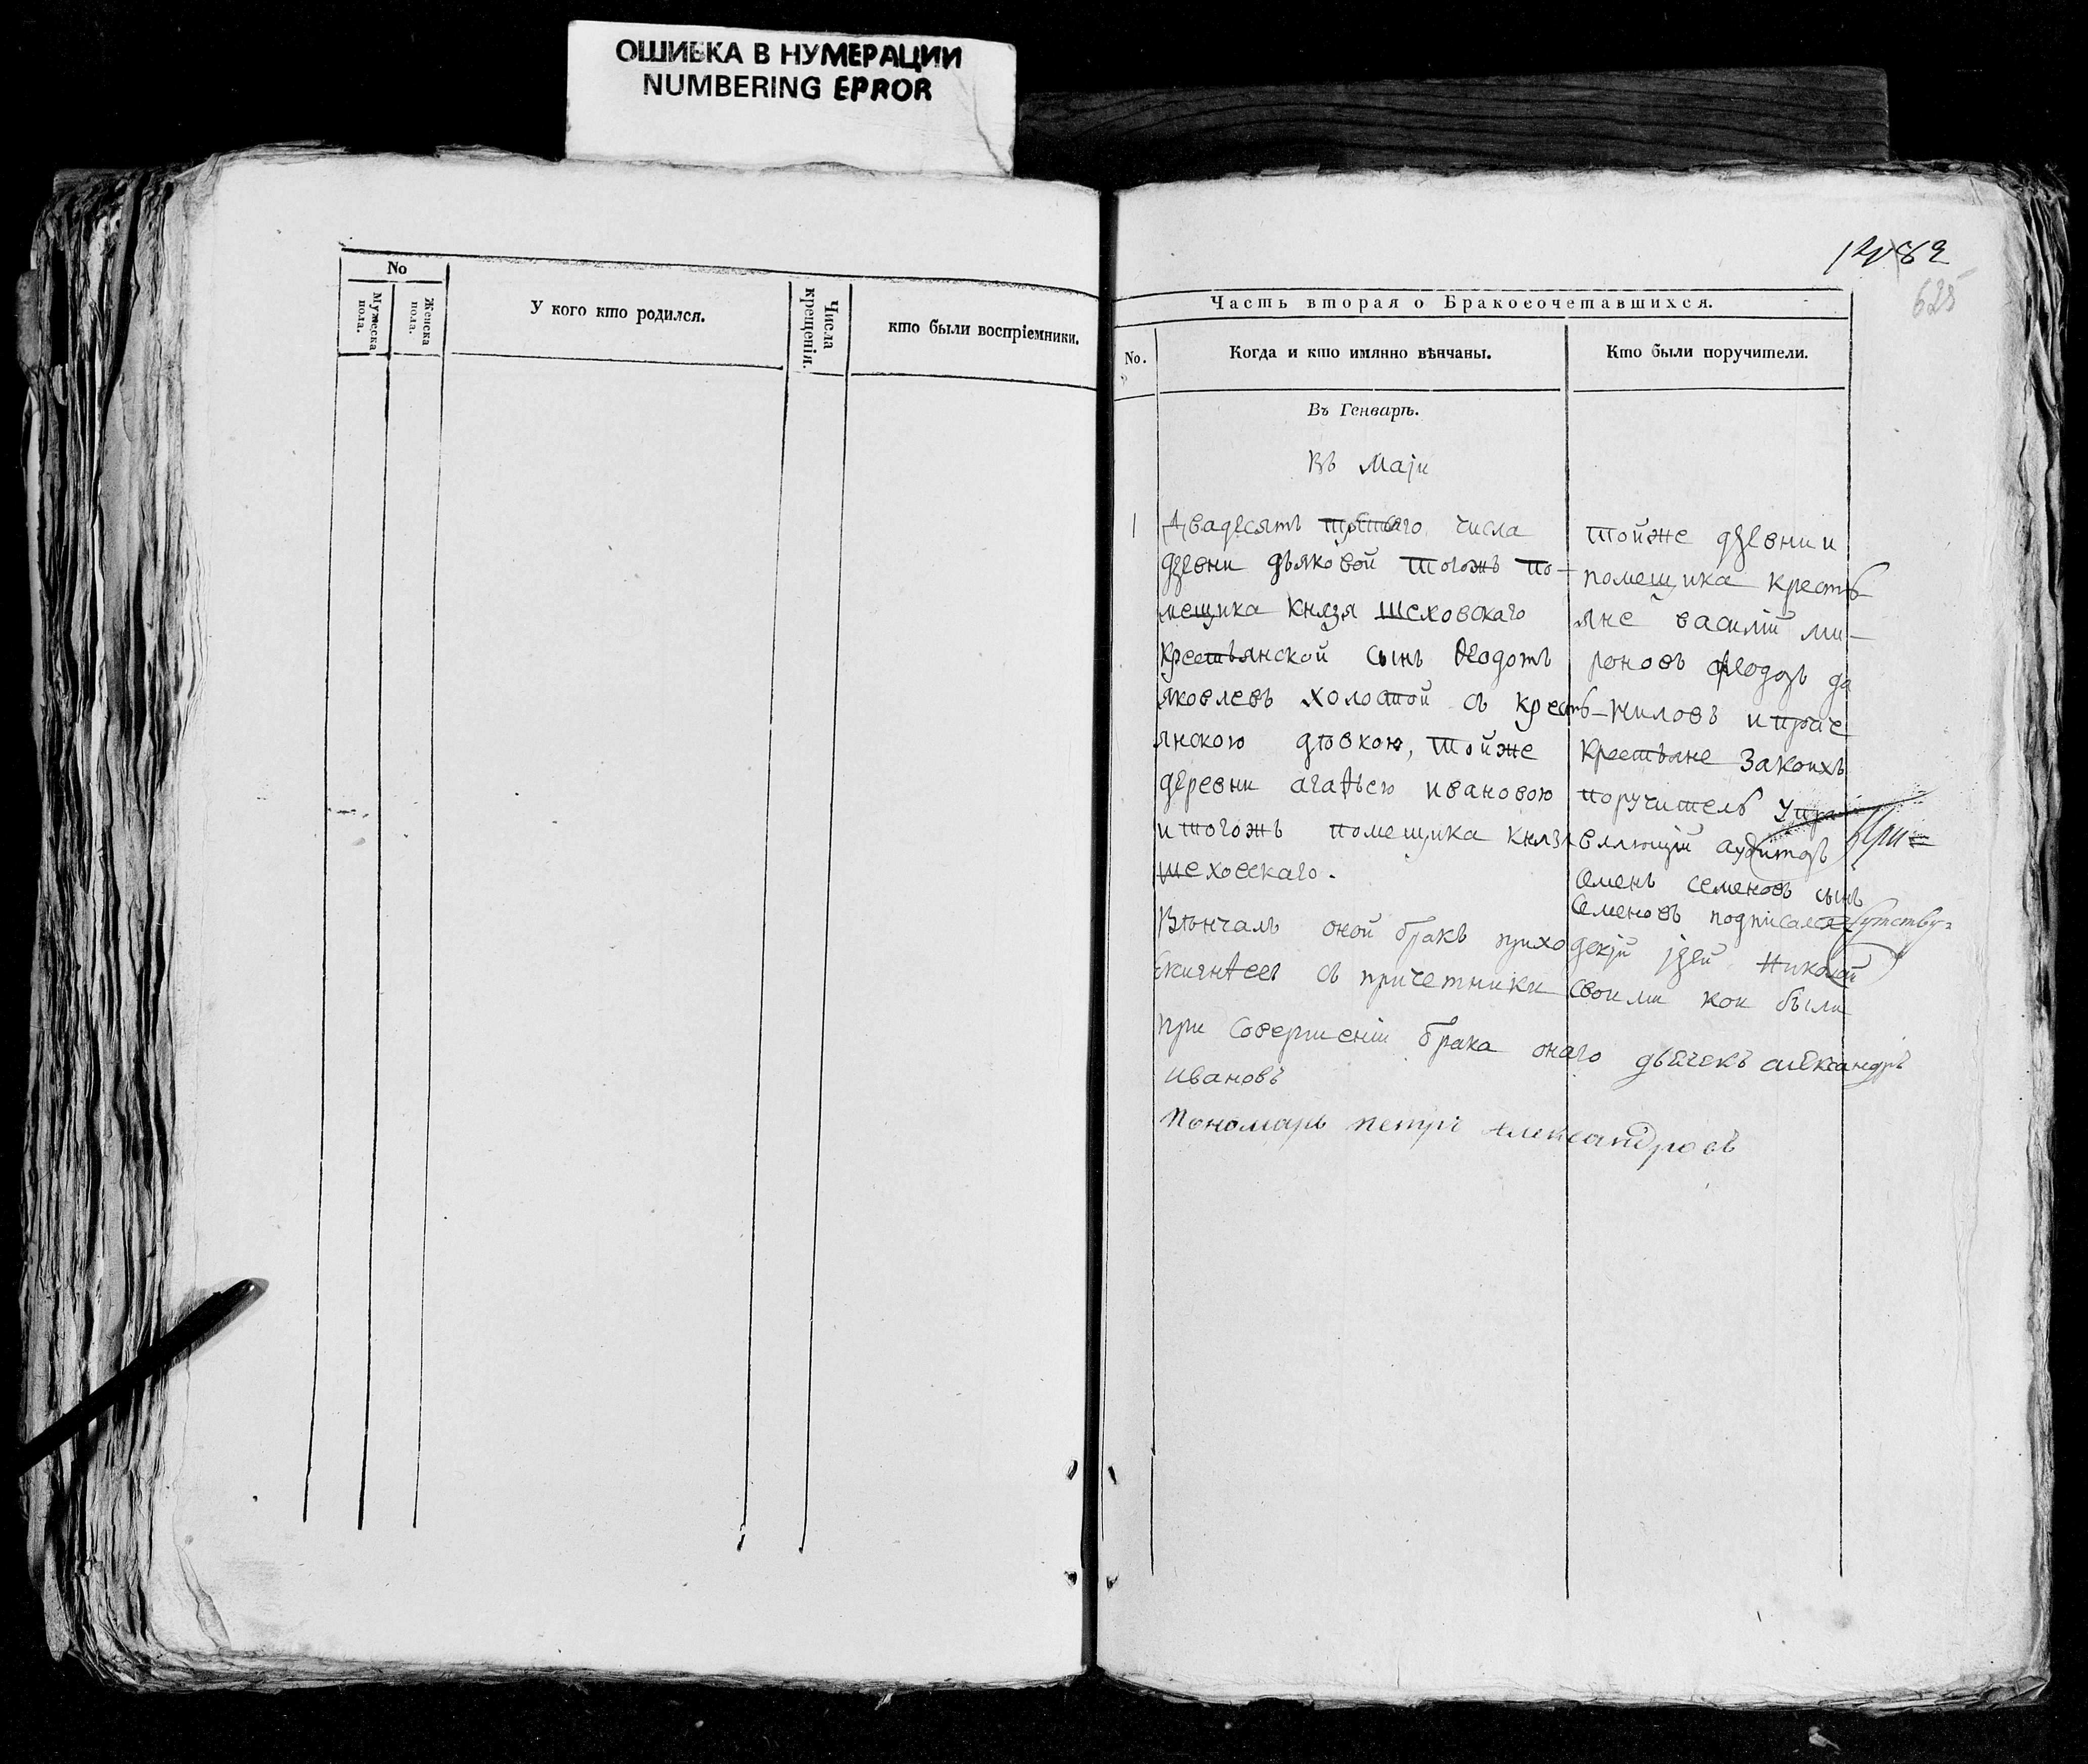 ОШИБКА В НУМЕРАЦИИ
NUMBERING ERROR
No
Мужеска пола.
Женска пола.
У кого кто родился.
Числа крещенія.
кто были воспріемники.
625
Часть вторая о Бракосочетавшихся.
No.
Когда и кто имянно вѣнчаны.
Кто были поручители.
Въ Генварѣ.
Въ Маји
1
Двадесятъ третьяго числа
дрeвни дьяковой тогожъ по-
мещика Князя шеховскаго
Крестьянской сынъ Ѳедотъ
яковлевъ холостой съ кресть-
янскою дѣвкою, тойже
деревни агаѳьею ивановою
и тогожъ помещика князя
шеховскаго.
тойже дрeвни и
помещика кресть
яне василій ми-
роновъ Ѳедоръ да
ниловъ и прoче
Крестьяне Закоихъ
поручителъ упра
вляющій аудиторъ
семенъ семеновъ сынъ
Семеновъ подписался
Вѣнчалъ оной бракъ приходскій јрей Николай
съ причетники своими кои были
при Совершеніи брака онаго дьячекъ александръ
ивановъ
Пономарь петръ александровъ